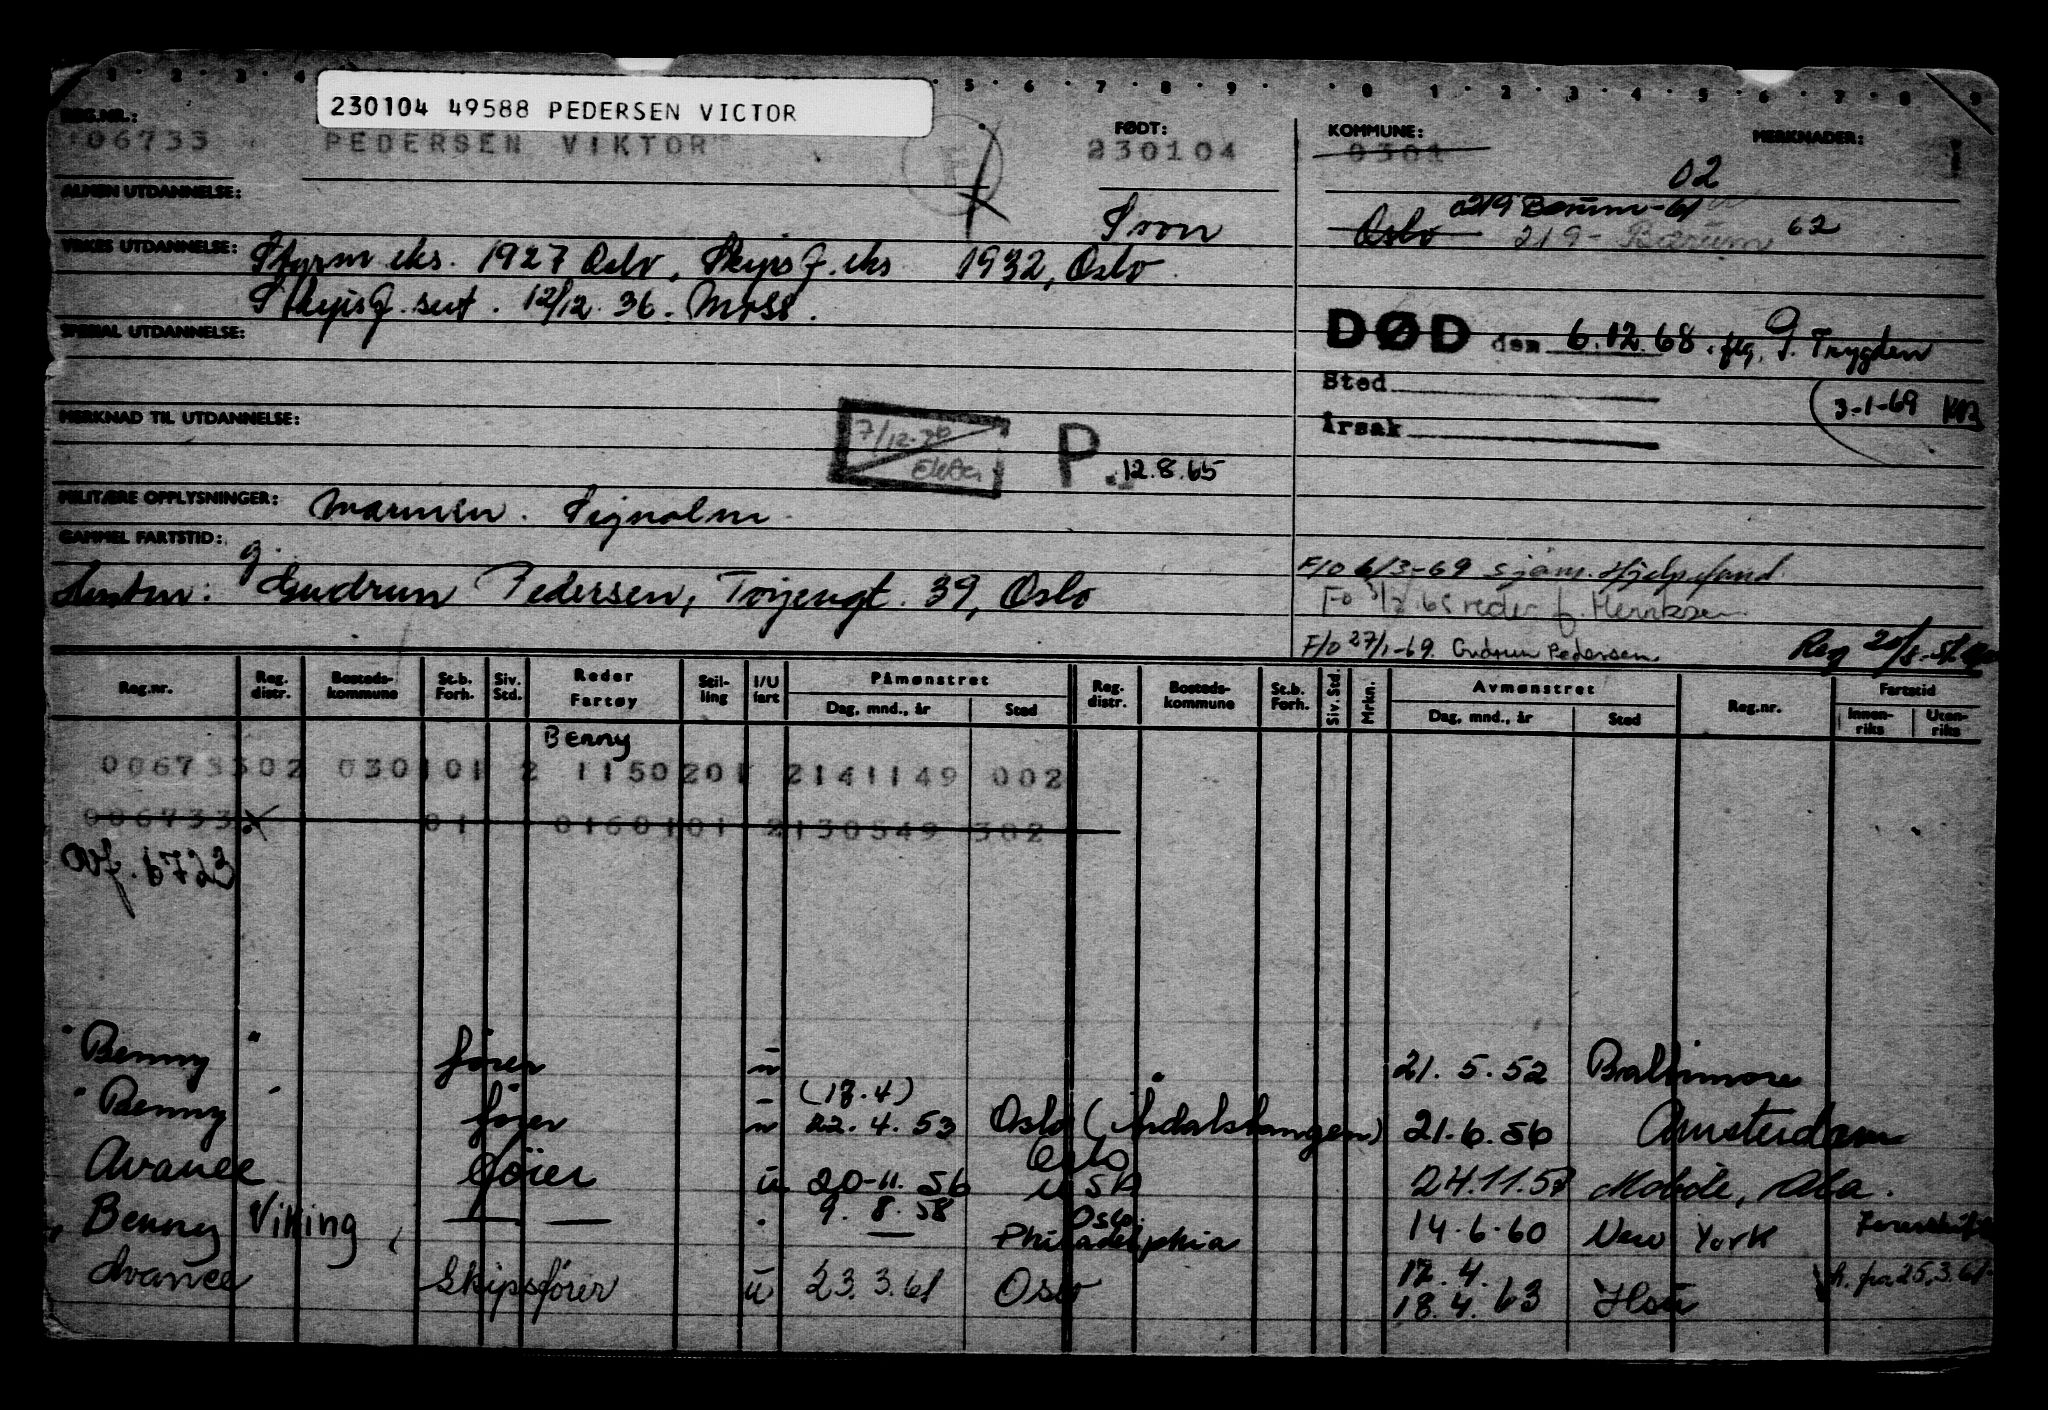 1 · 2 · 3 · 4 5 · 6 · 7 · 8 · 9 · · 0 · 1 · 2 · 3 · 4 · 5 · 6 · 7 · 8 · 9
230104 49588 PEDERSEN VICTOR
REG.NR.: FØDT: KOMMUNE: MERKNADER:
06733 PEDERSEN VIKTOR F 230104 0301
02
ALMEN UTDANNELSE:
0219 Bærum-61
Oslo 219- Bærum 62
YRKES UTDANNELSE: Styrm eks. 1927 Oslo, Skipsf. eks 1932, Oslo
Skipsf. sert. 12/12.36. Moss.
SPESIAL UTDANNELSE:
DØD den 6.12.68. Trygden
Sted
3-1-69
Årsak
MERKNAD TIL UTDANNELSE:
7/12-
P. 12.8.65
MILITÆRE OPPLYSNINGER: Marinen.
GAMMEL FARTSTID:
Gudrun Pedersen, 39, Oslo
F/O 6/3-69 sjøm. Hjelpefond
reder f. Henriksen
F/O 27/1-69. Gudrun Pedersen
Reg.nr. Reg. distr. Bosteds-kommune St.b. Forh. Siv. Std. Reder Fartøy Stil-ling I/U fart Påmønstret Dag, mnd., år Sted Reg. distr. Bosteds-kommune St.b. Forh. Siv. Std. Mrkn. Avmønstret Dag, mnd., år Sted Reg.nr. Fartstid Innen-riks Uten-riks
Benny
006733 02 0301 01 2 1150 201 2141149 002
006733 01 0160101 2130549 302
"Benny" fører u 21.5.52 Baltimore
(18.4)
"Benny" fører u 22.4.53 Oslo (Årdalstangen) 21.6.56 Amsterdam
Oslo
Avance fører u 20-11.56 24.11.57 Mobile, Ala.
9.8.58 Oslo
Benny Viking — — — Philadelphia 14.6.60 New York
Avance Skipsfører u 23.3.61 Oslo 17.4.
18.4.63